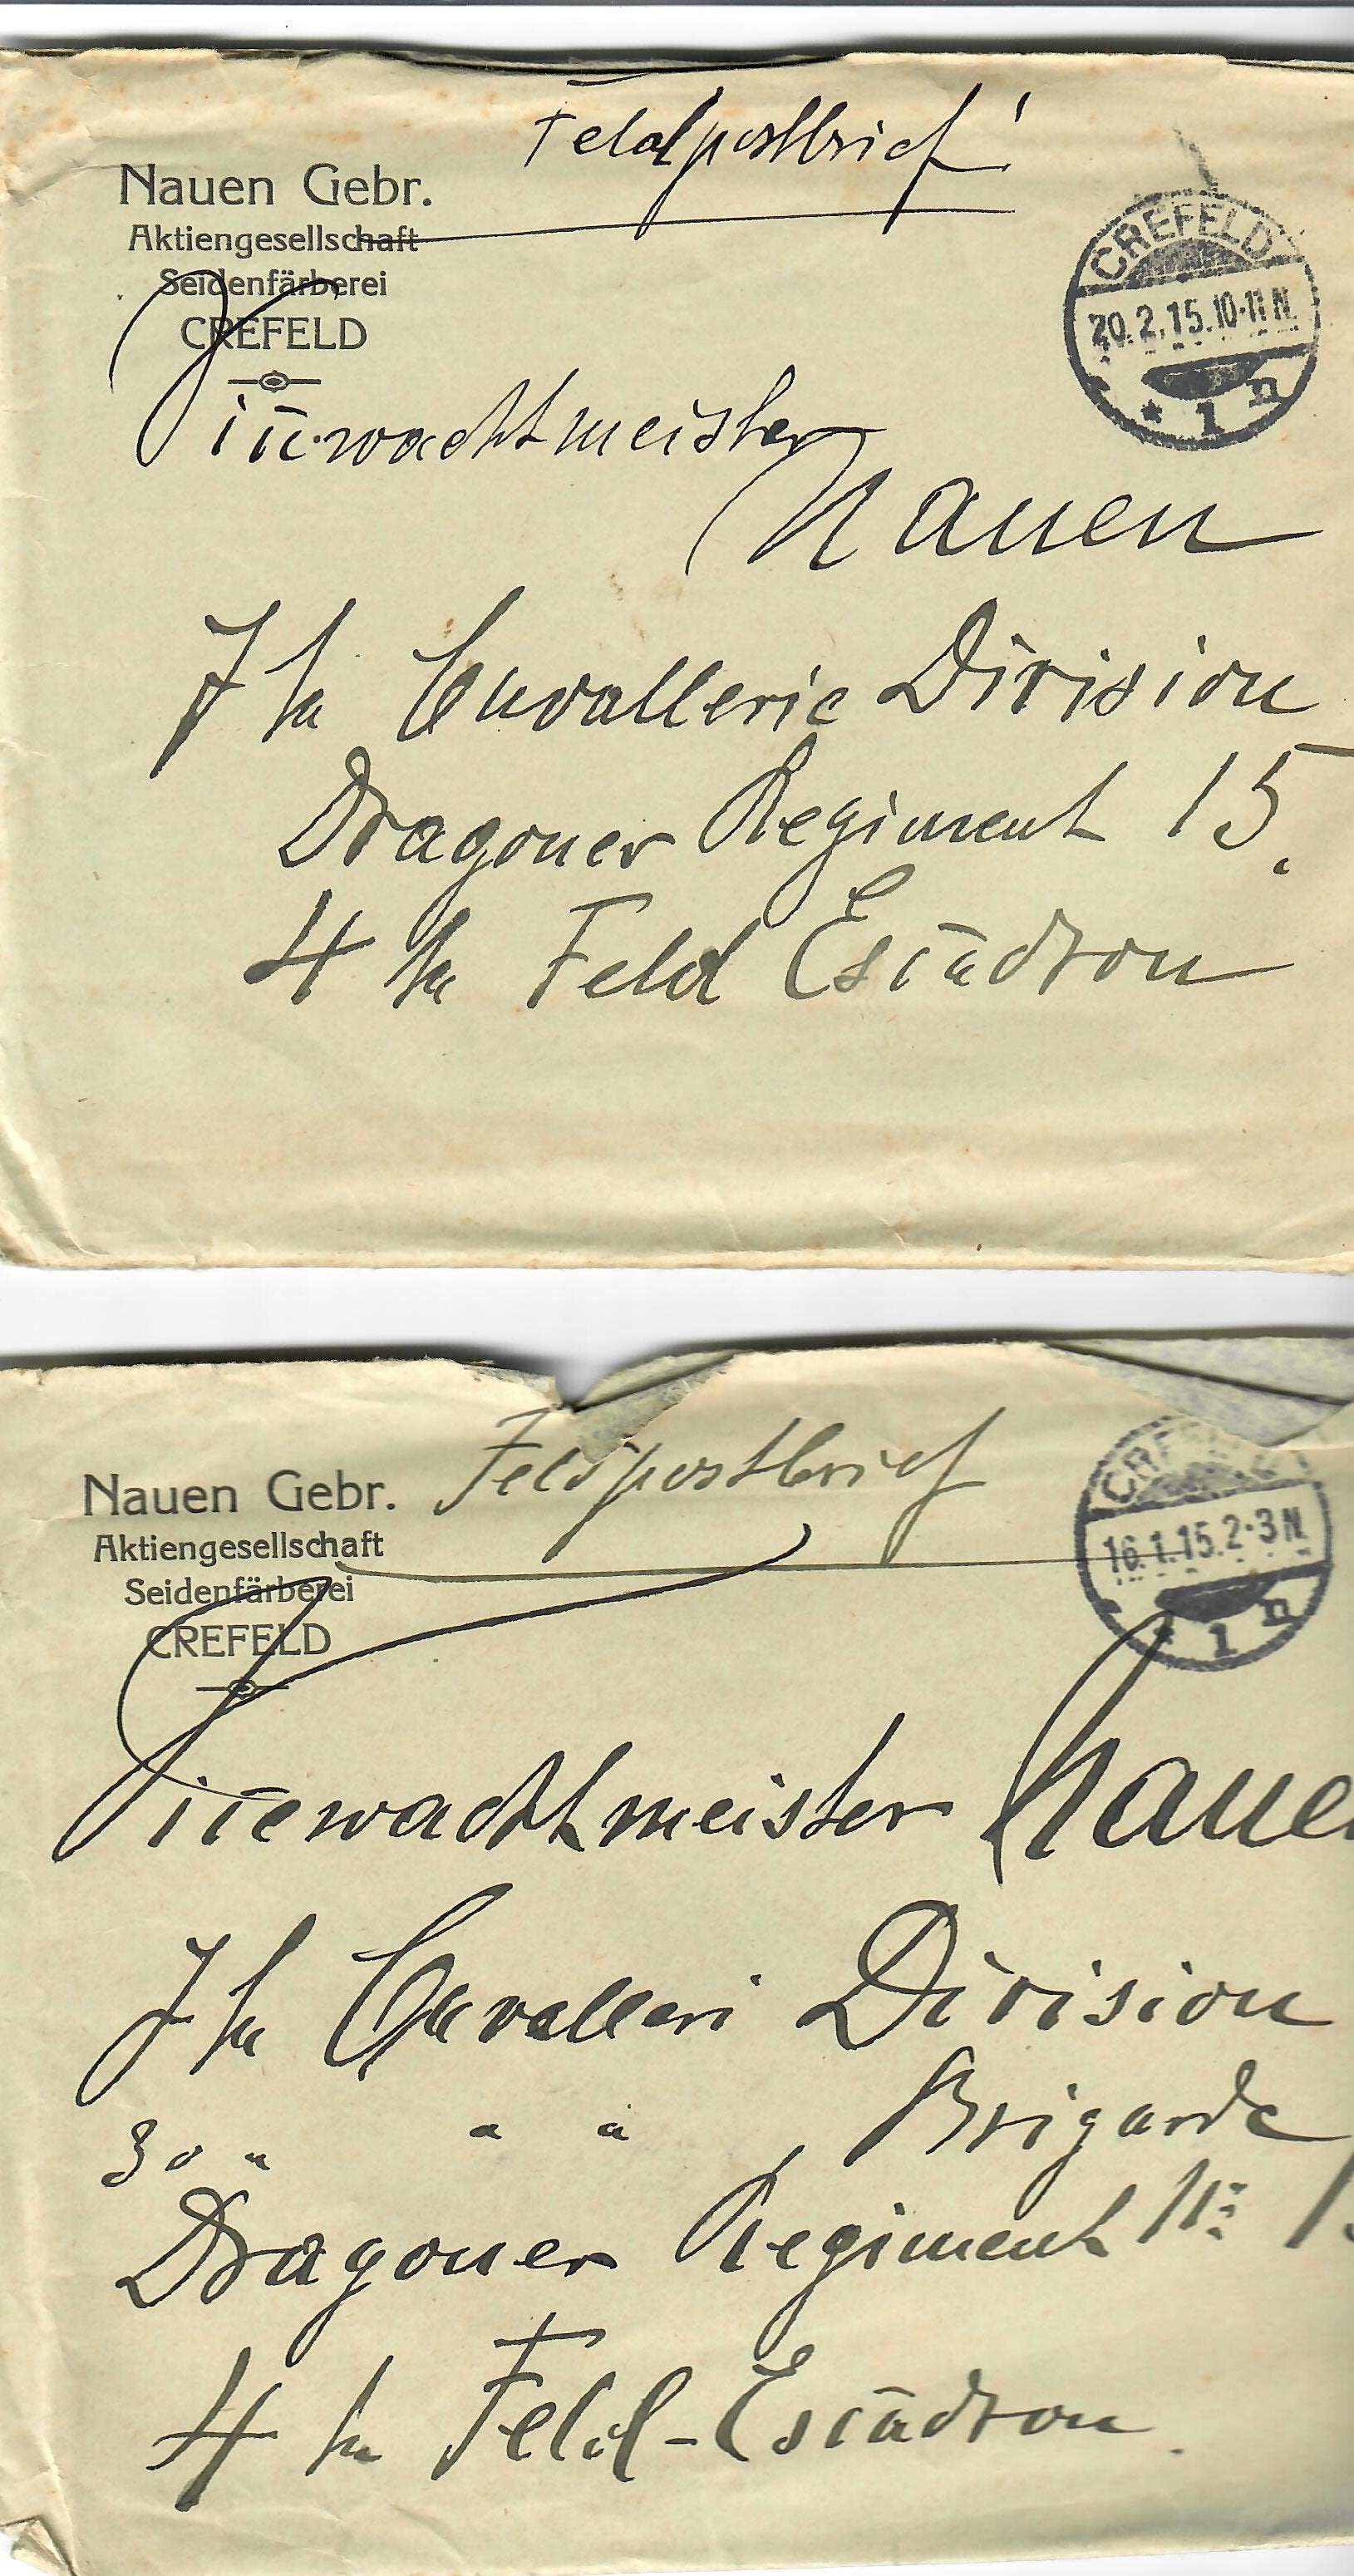 Feldpostbrief!
Nauen Gebr.
Aktiengesellschaft
Seidenfärberei
CREFELD
CREFELD
20.2.15.10-11N.
* 1 n
Vicewachtmeister
Nauen
7te Cavallerie Division
Dragoner Regiment 15.
4te Feld Escadron
Feldpostbrief
Nauen Gebr.
Aktiengesellschaft
Seidenfärberei
CREFELD
16.1.15.2-3N.
1 n
Vicewachtmeister Naue
7te Cavalleri Division
30 " " " Brigarde
Dragoner Regiment No 1
4te Feld-Escadron.